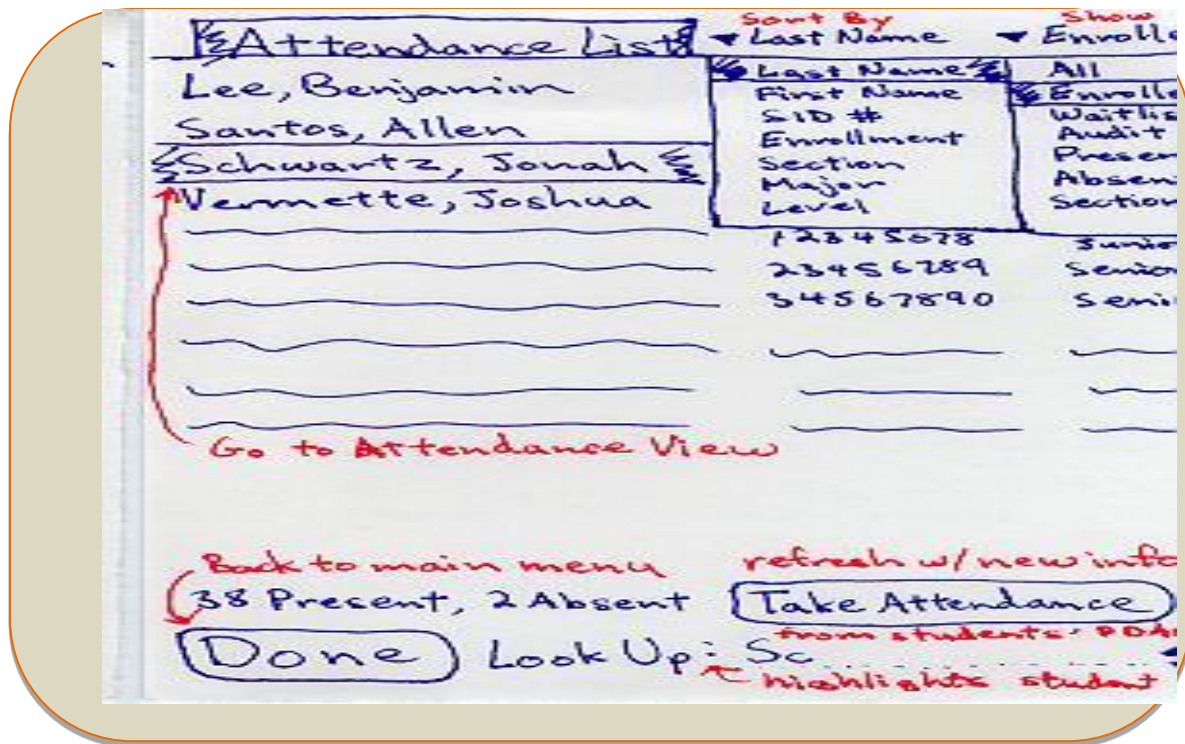 Sort By Show
Attendance List ▾ Last Name ▾ Enrolle
Lee, Benjamin
Santos, Allen
Schwartz, Jonah
Vermette, Joshua
Last Name
First Name
SID #
Enrollment
Section
Major
Level
All
Enrolle
Waitlis
Audit
Presen
Absen
Section
12345678 Junio
23456789 Senior
34567890 Senio
Go to Attendance View
Back to main menu refresh w/ new info
38 Present, 2 Absent Take Attendance
from students' PDA
Done Look Up: Sc
highlights student